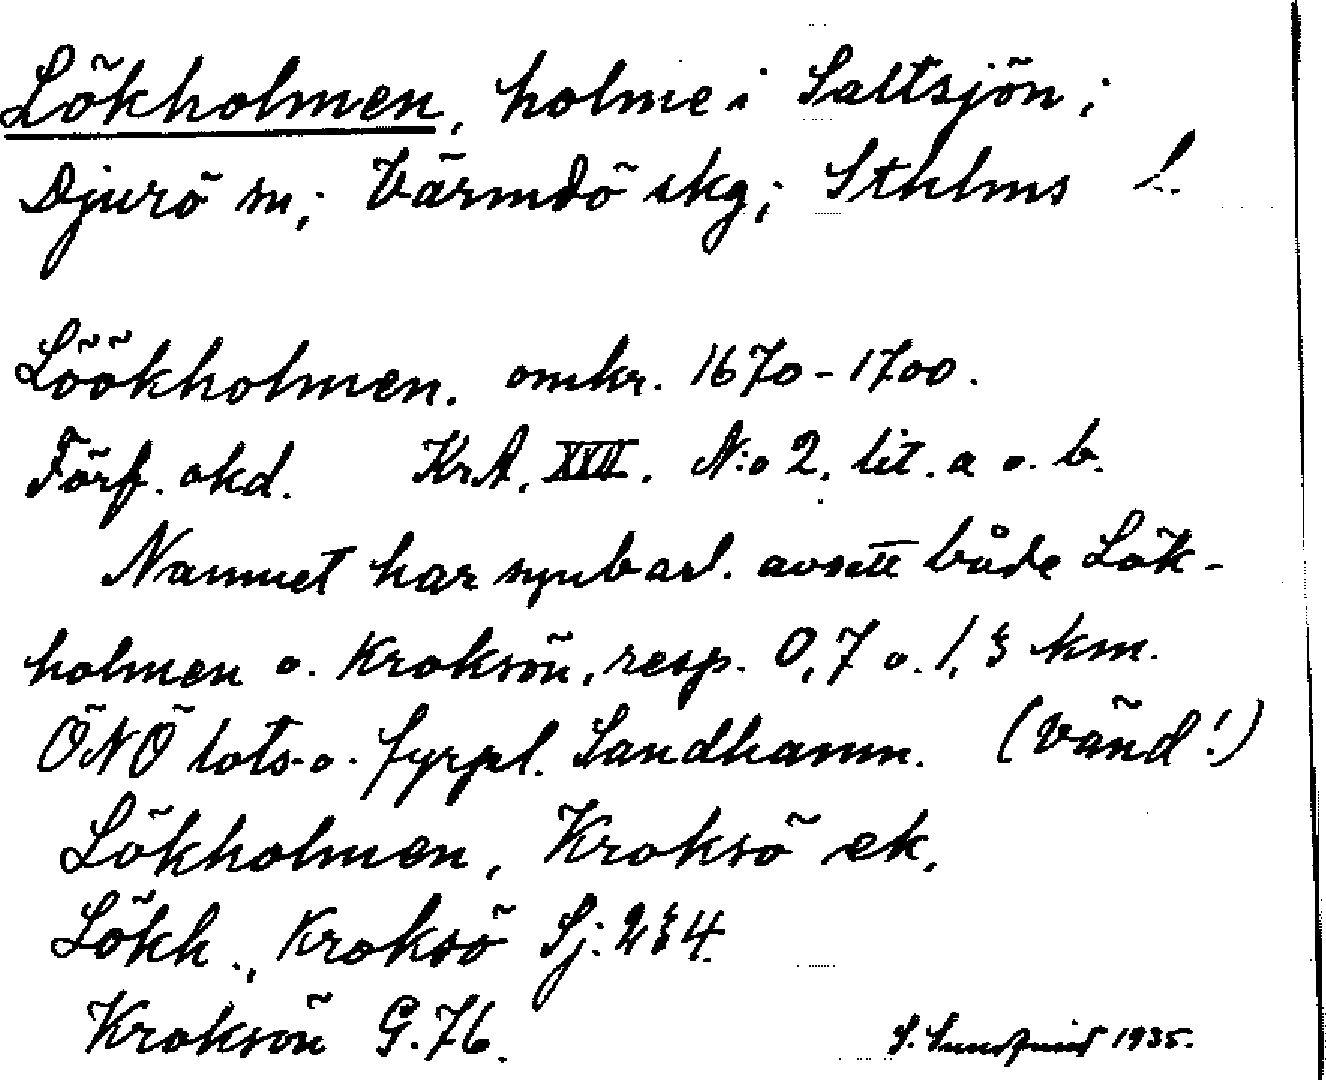 Lökholmen, holme i Saltsjön;
Djurö sn; Värmdö skg; Sthlms l.
Löökholmen. omkr. 1670-1700.
Förf. okd. KrA. XVII. N:o 2. lit. a o. b.
Namnet har synbarl. avsett både Lök-
holmen o. Kroksön, resp. 0,7 o. 1,3 km.
ÖNÖ lots- o. fyrpl. Sandhamn. (Vänd!)
Lökholmen, Kroksö ek.
Lökh., Kroksö Sj. 234.
Kroksön G. 76.
1935.